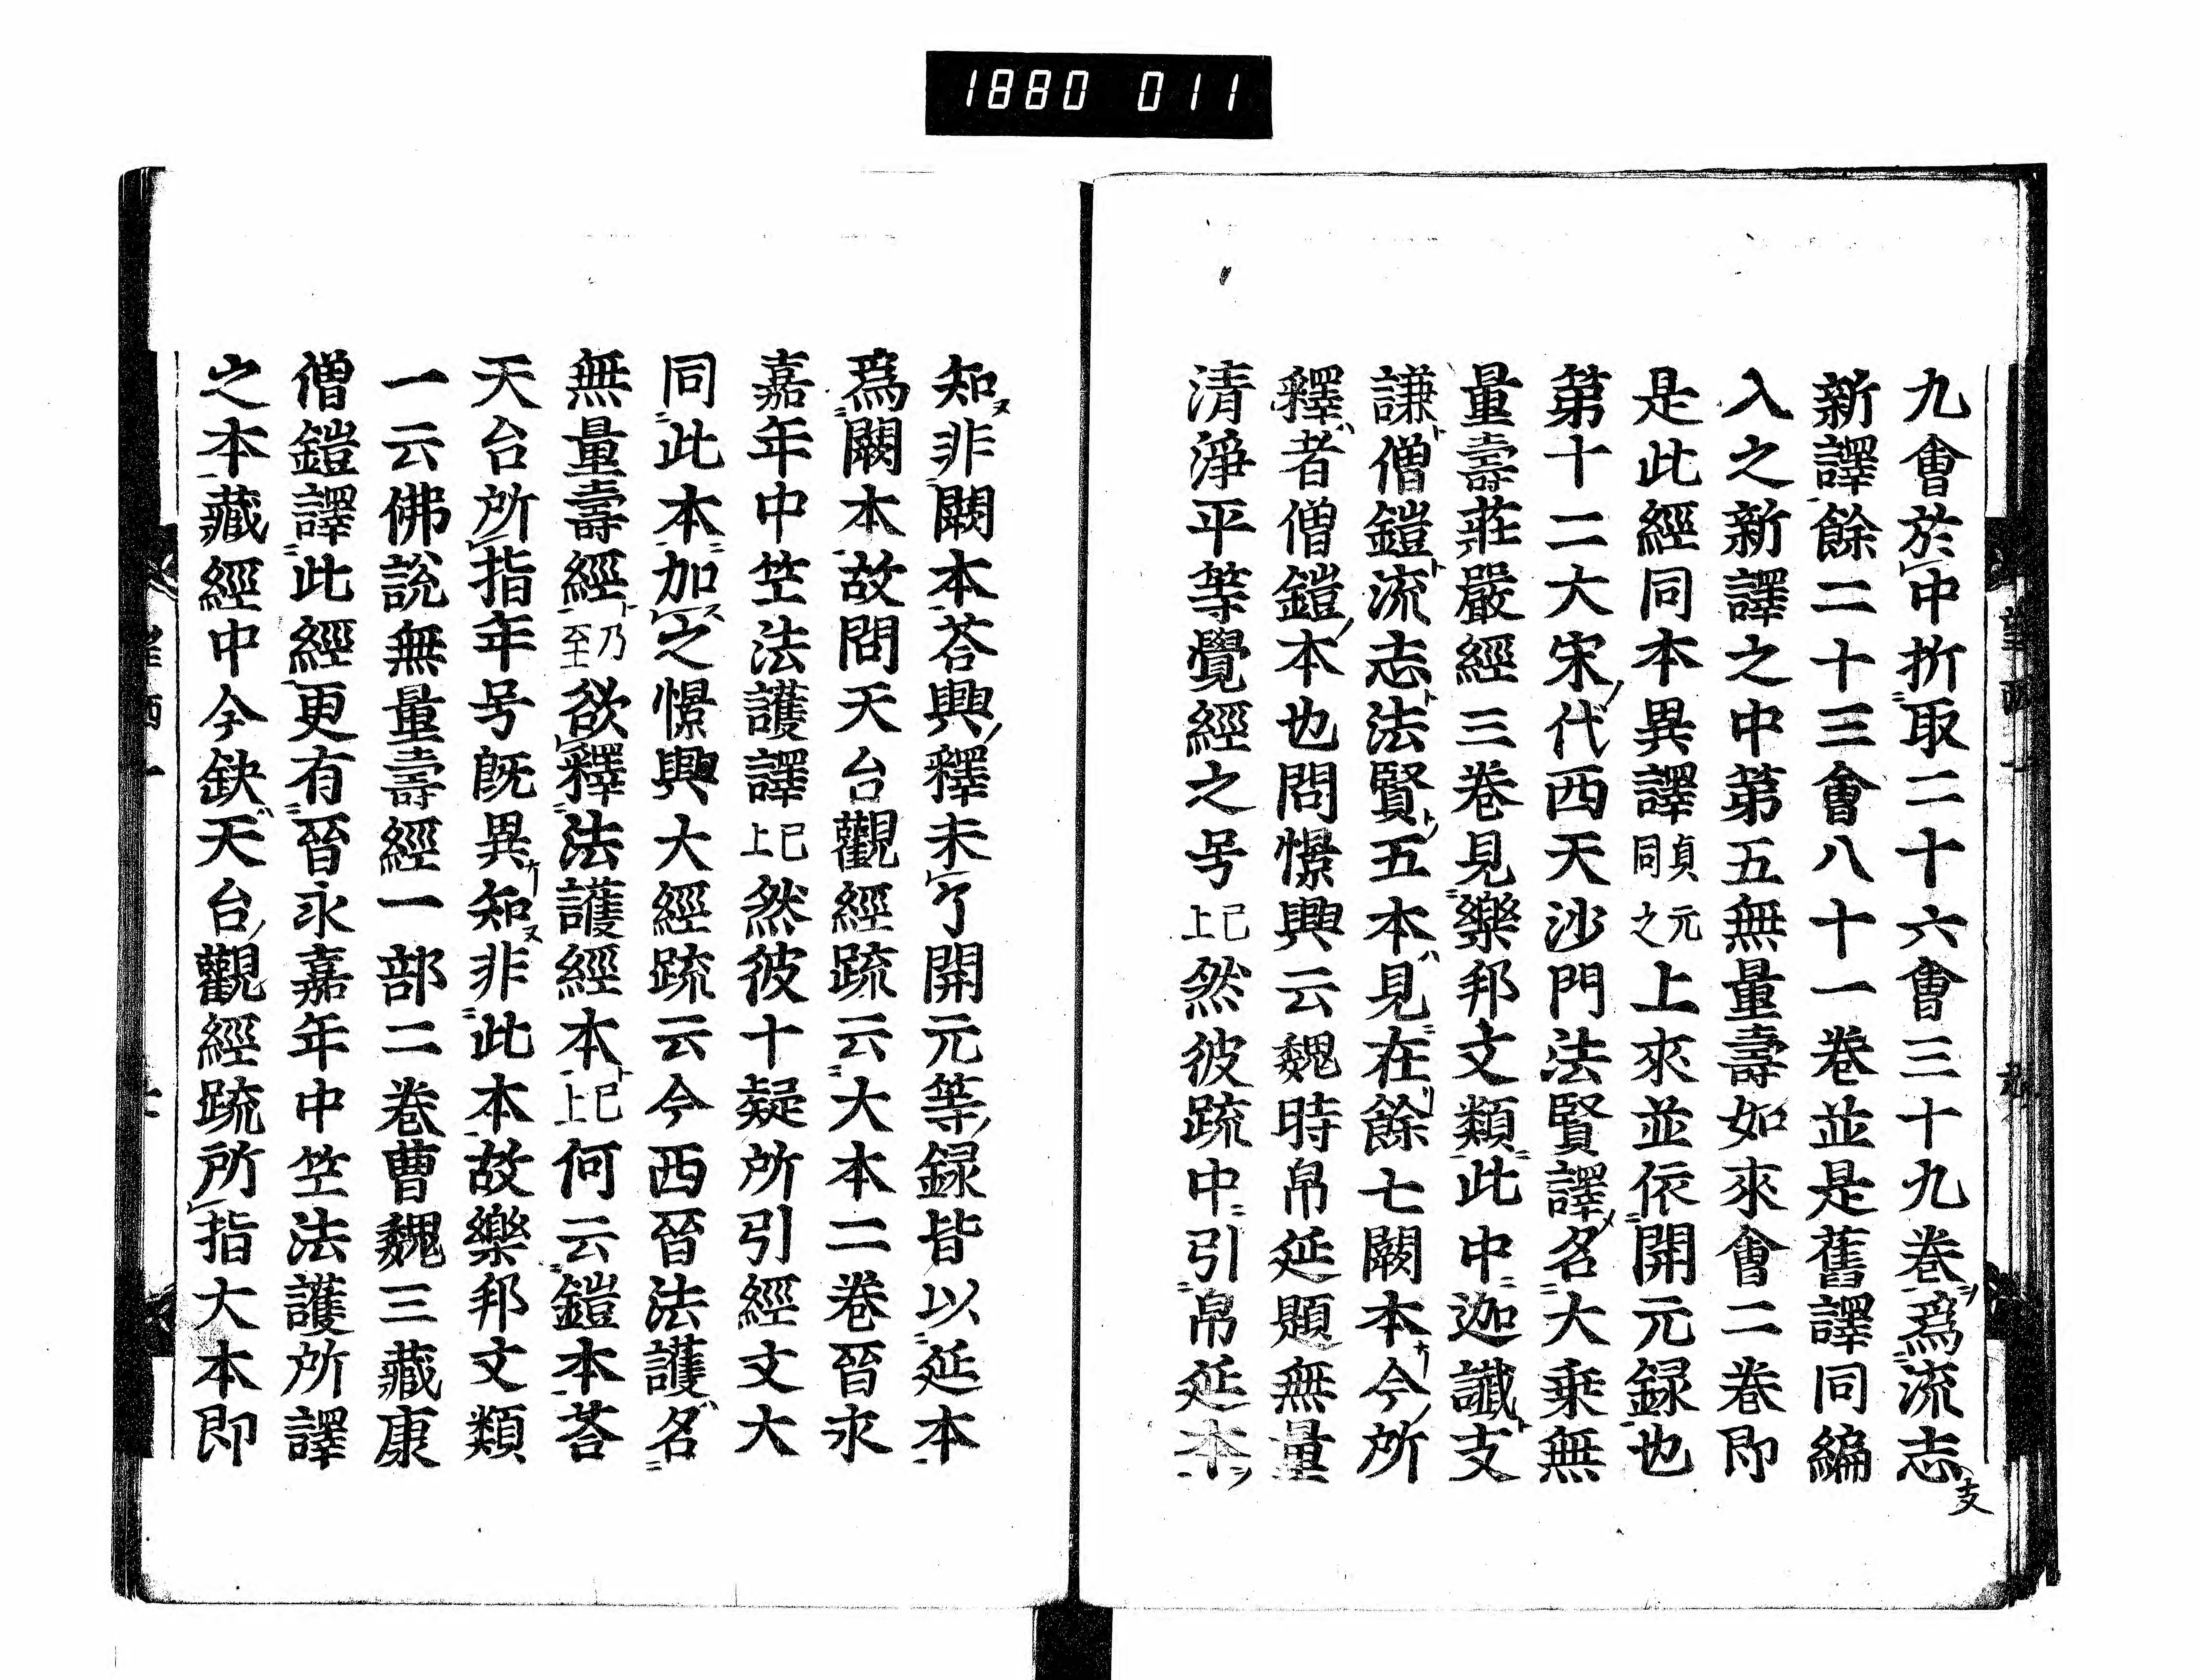 1880 011
九會於中折取二十六會三十九卷爲流志
支
新譯餘二十三會八十一卷並是舊譯同編
入之新譯之中第五無量壽如來會二卷即
是此經同本異譯貞元同之上來並依開元録也
第十二大宋代西天沙門法賢譯名大乗無
量壽莊嚴經三卷見樂邦文類此中迦讖支
謙僧鎧流志法賢五本見在餘七闕本今所
釋者僧鎧本也問憬興云魏時帛延題無量
清淨平等覺經之号已上然彼疏中引帛延本
知非闕本荅興釋未了開元等録皆以延本
爲闕本故問天台觀經疏云大本二卷晉永
嘉年中竺法護譯已上然彼十疑所引經文大
同此本加之憬興大經疏云今西晉法護名
無量壽經乃至欲釋法護經本已上何云鎧本荅
天台所指年号既異知非此本故樂邦文類
一云佛説無量壽經一部二卷曹魏三藏康
僧鎧譯此經更有晉永嘉年中竺法護所譯
之本藏經中今缺天台觀經疏所指大本即